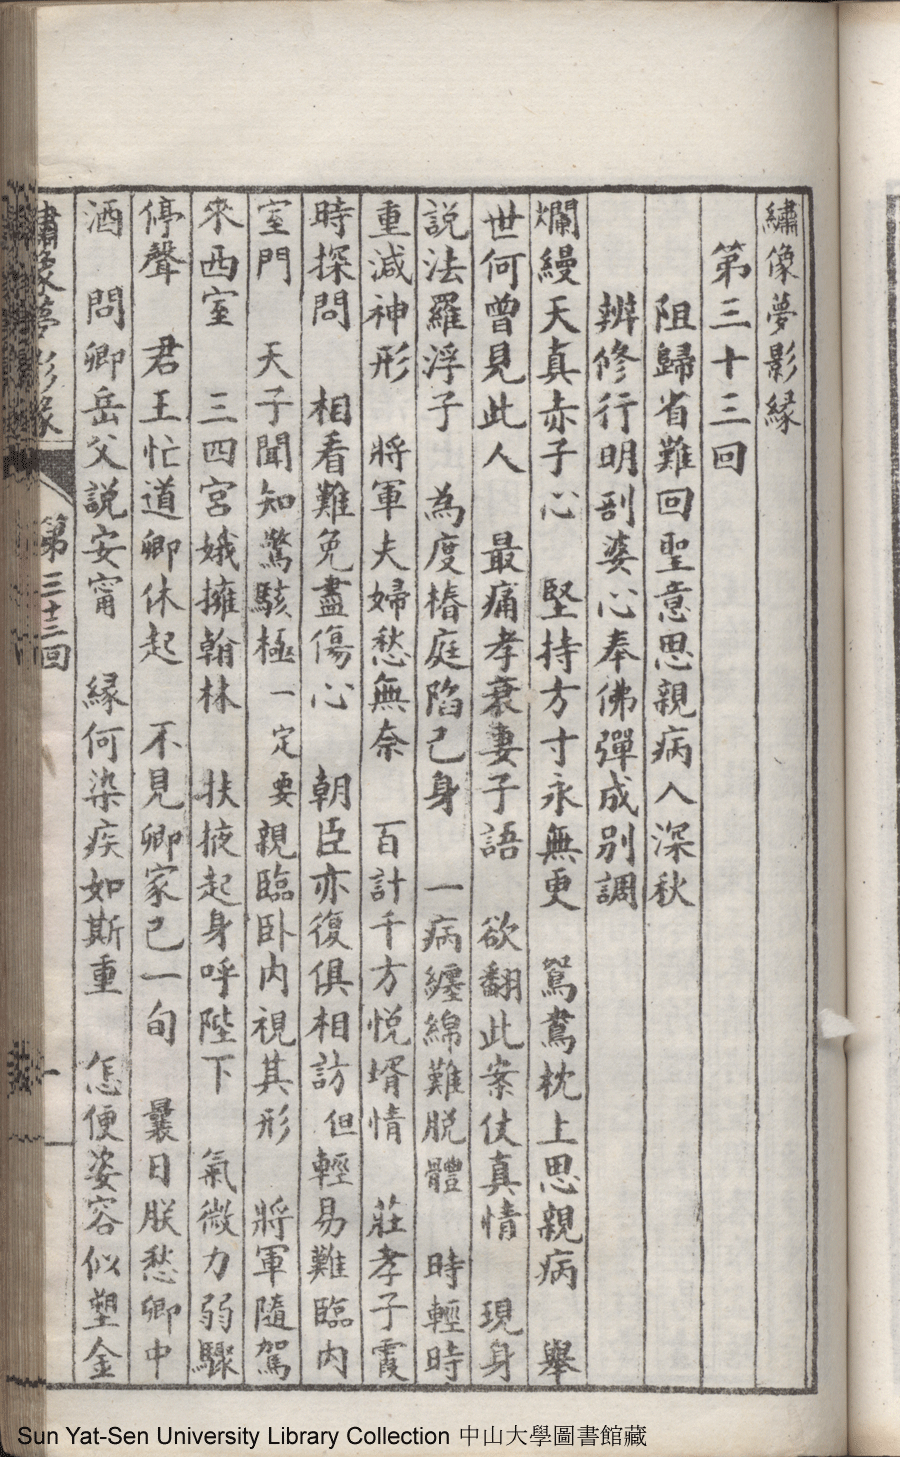 繡像夢影緣
第三十三回
阻歸省難回聖意思親病入深秋
辨修行明剖婆心奉佛彈成別調
爛縵天真赤子心　堅持方寸永無更　鴛鴦枕上思親病　舉
世何曾見此人　最痛孝衰妻子語　欲翻此案仗真情　現身
説法羅浮子　為度椿庭陷己身　一病纏綿難脱體　時輕時
重減神形　將軍夫婦愁無奈　百計千方悦壻情　莊孝子霞
時探問　相看難免盡傷心　朝臣亦復俱相訪　但輕易難臨內
室門　天子聞知驚駭極　一定要親臨卧內視其形　將軍隨駕
來西室　三四宮娥擁翰林　扶掖起身呼陛下　氣微力弱驟
停聲　君王忙道卿休起　不見卿家已一旬　曩日朕愁卿中
酒　問卿岳父説安甯　緣何染疾如斯重　怎便姿容似塑金
繡像夢影緣　第三十三回　一
Sun Yat-Sen University Library Collection 中山大學圖書館藏